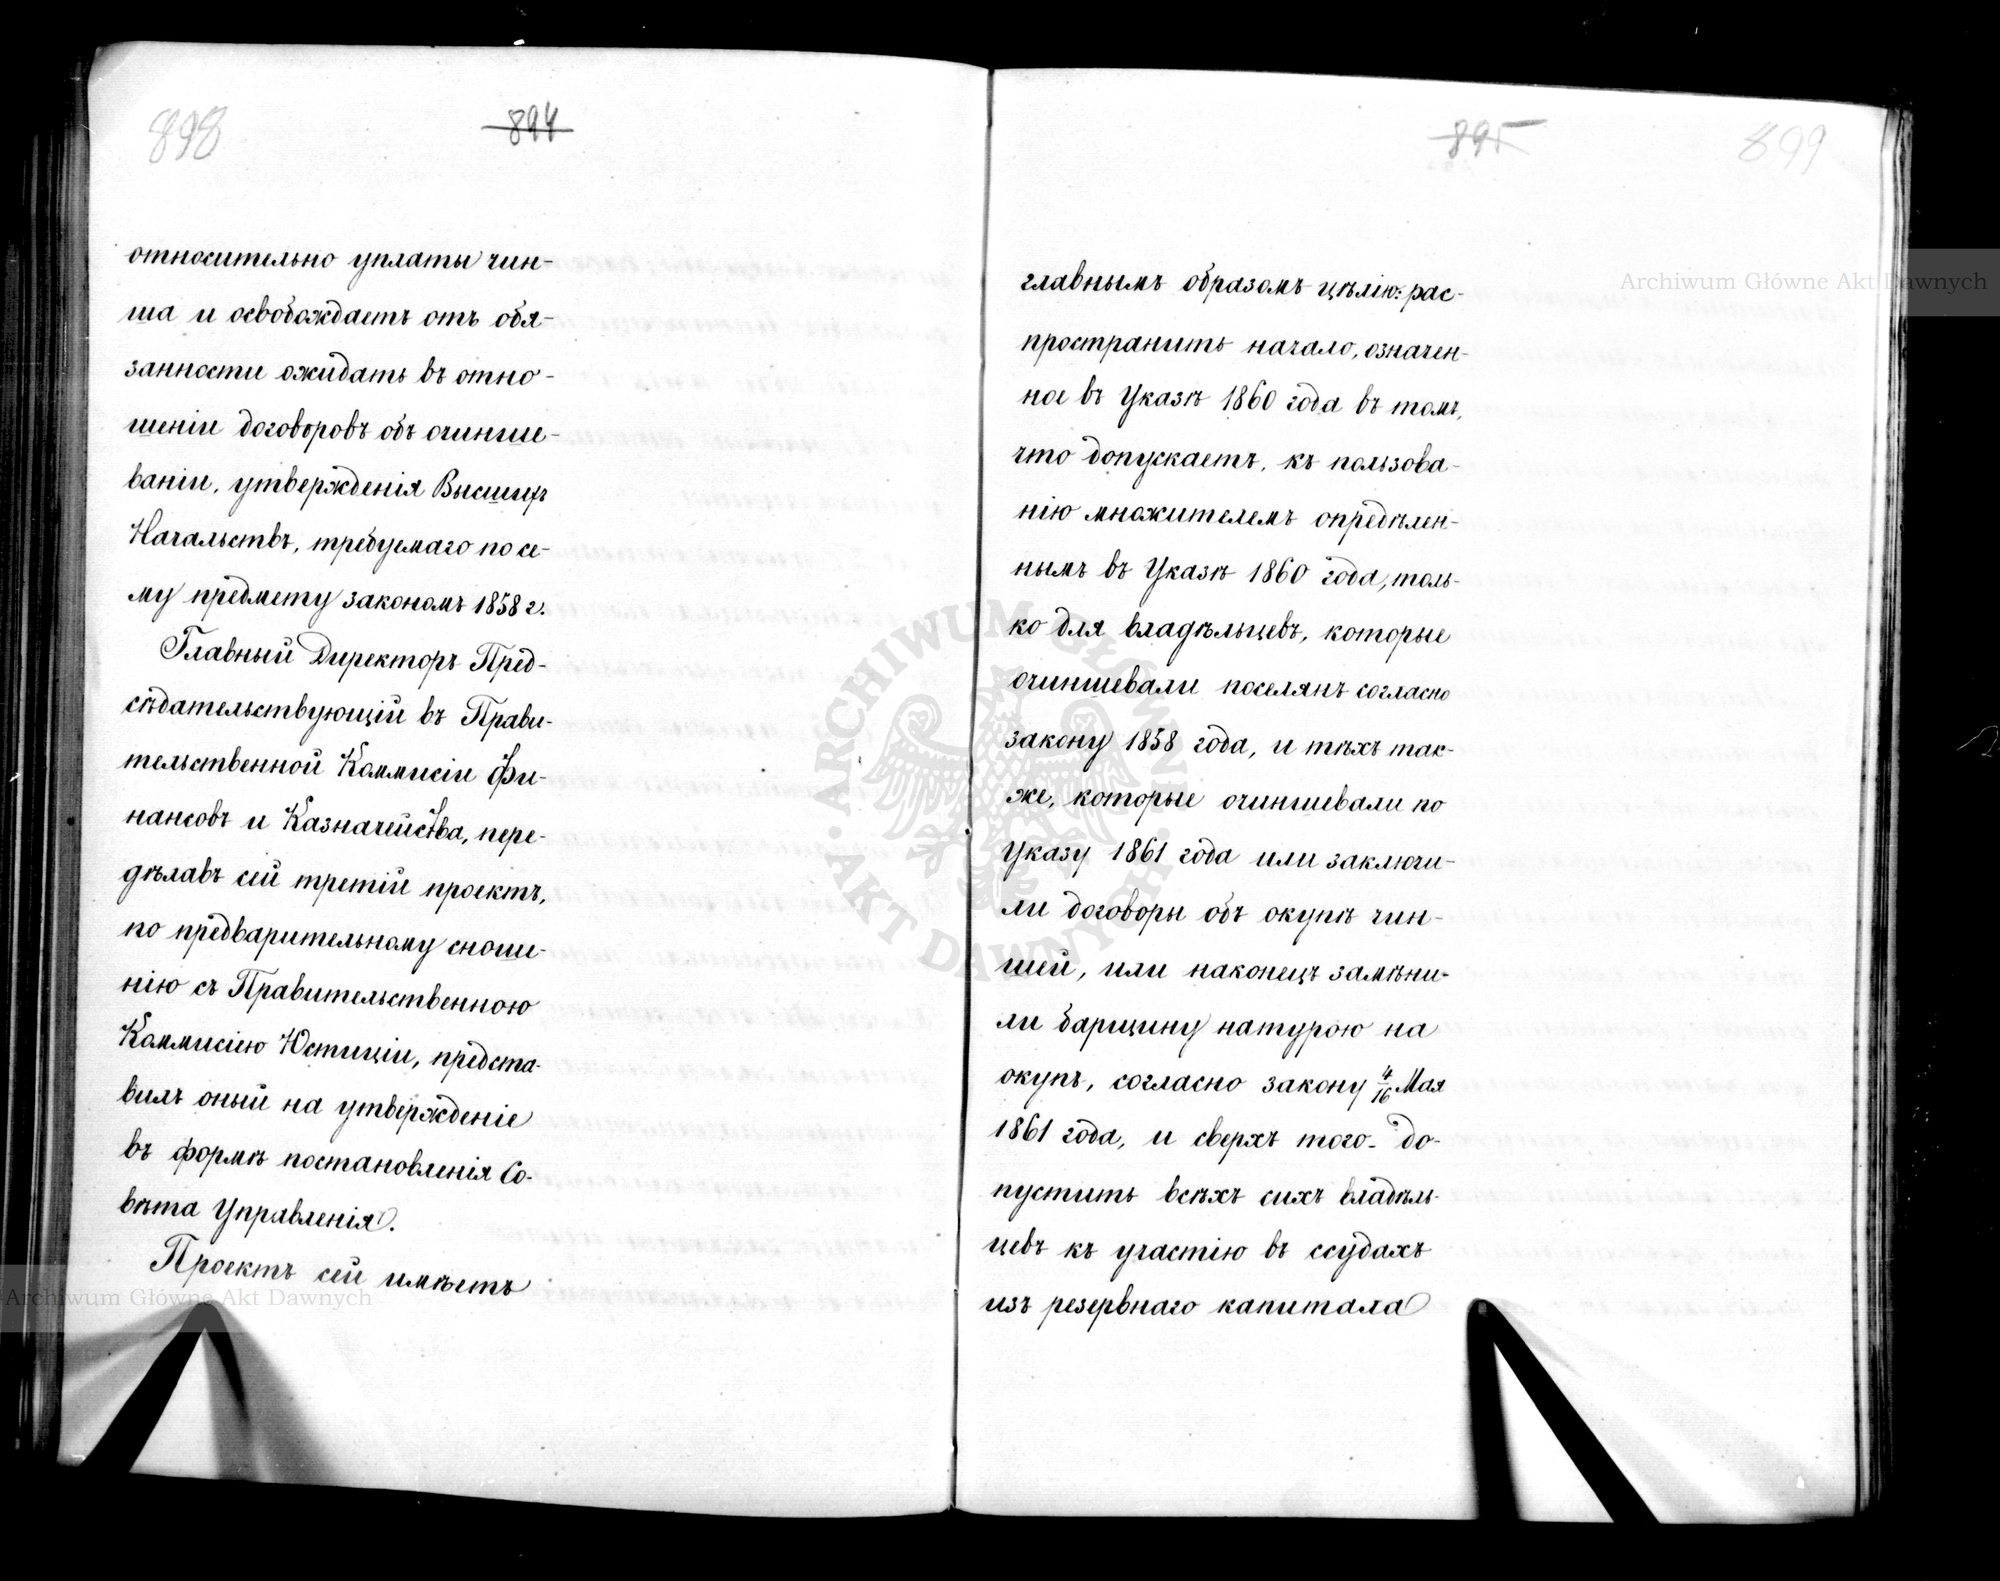 898
894
относительно уплаты чин-
ша и освобождаетъ отъ обя-
занности ожидать въ отно-
шеніи договоровъ объ очинше-
ваніи, утвержденія Высшихъ
Начальствъ, требуемаго по се-
му предмету закономъ 1858 г.
Главный Директоръ Пред-
сѣдательствующій въ Прави-
тельственной Коммисіи Фи-
нансовъ и Казначейства, пере-
дѣлавъ сей третій проектъ,
по предварительному сноше-
нію съ Правительственною
Коммисіею Юстиціи, предста-
вилъ оный на утвержденіе
въ формѣ постановленія Со-
вѣта Управленія.
Проектъ сей имѣетъ
895
899
главнымъ образомъ цѣлію: рас-
пространить начало, означен-
ное въ Указѣ 1860 года въ томъ,
что допускаетъ, къ пользова-
нію множителемъ опредѣлен-
нымъ въ Указѣ 1860 года, толь-
ко для владѣльцевъ, которые
очиншевали поселянъ согласно
закону 1858 года, и тѣхъ так-
же, которые очиншевали по
Указу 1861 года или заключи-
ли договоры объ окупѣ чин-
шей, или наконецъ замѣни-
ли барщину натурою на
окупъ, согласно закону 4/16 Мая
1861 года, и сверхъ того - до-
пустить всѣхъ сихъ владѣль-
цевъ къ участію въ ссудахъ
изъ резервнаго капитала
Archiwum Główne Akt Dawnych
Archiwum Główne Akt Dawnych
ARCHIWUM GŁÓWNE AKT DAWNYCH